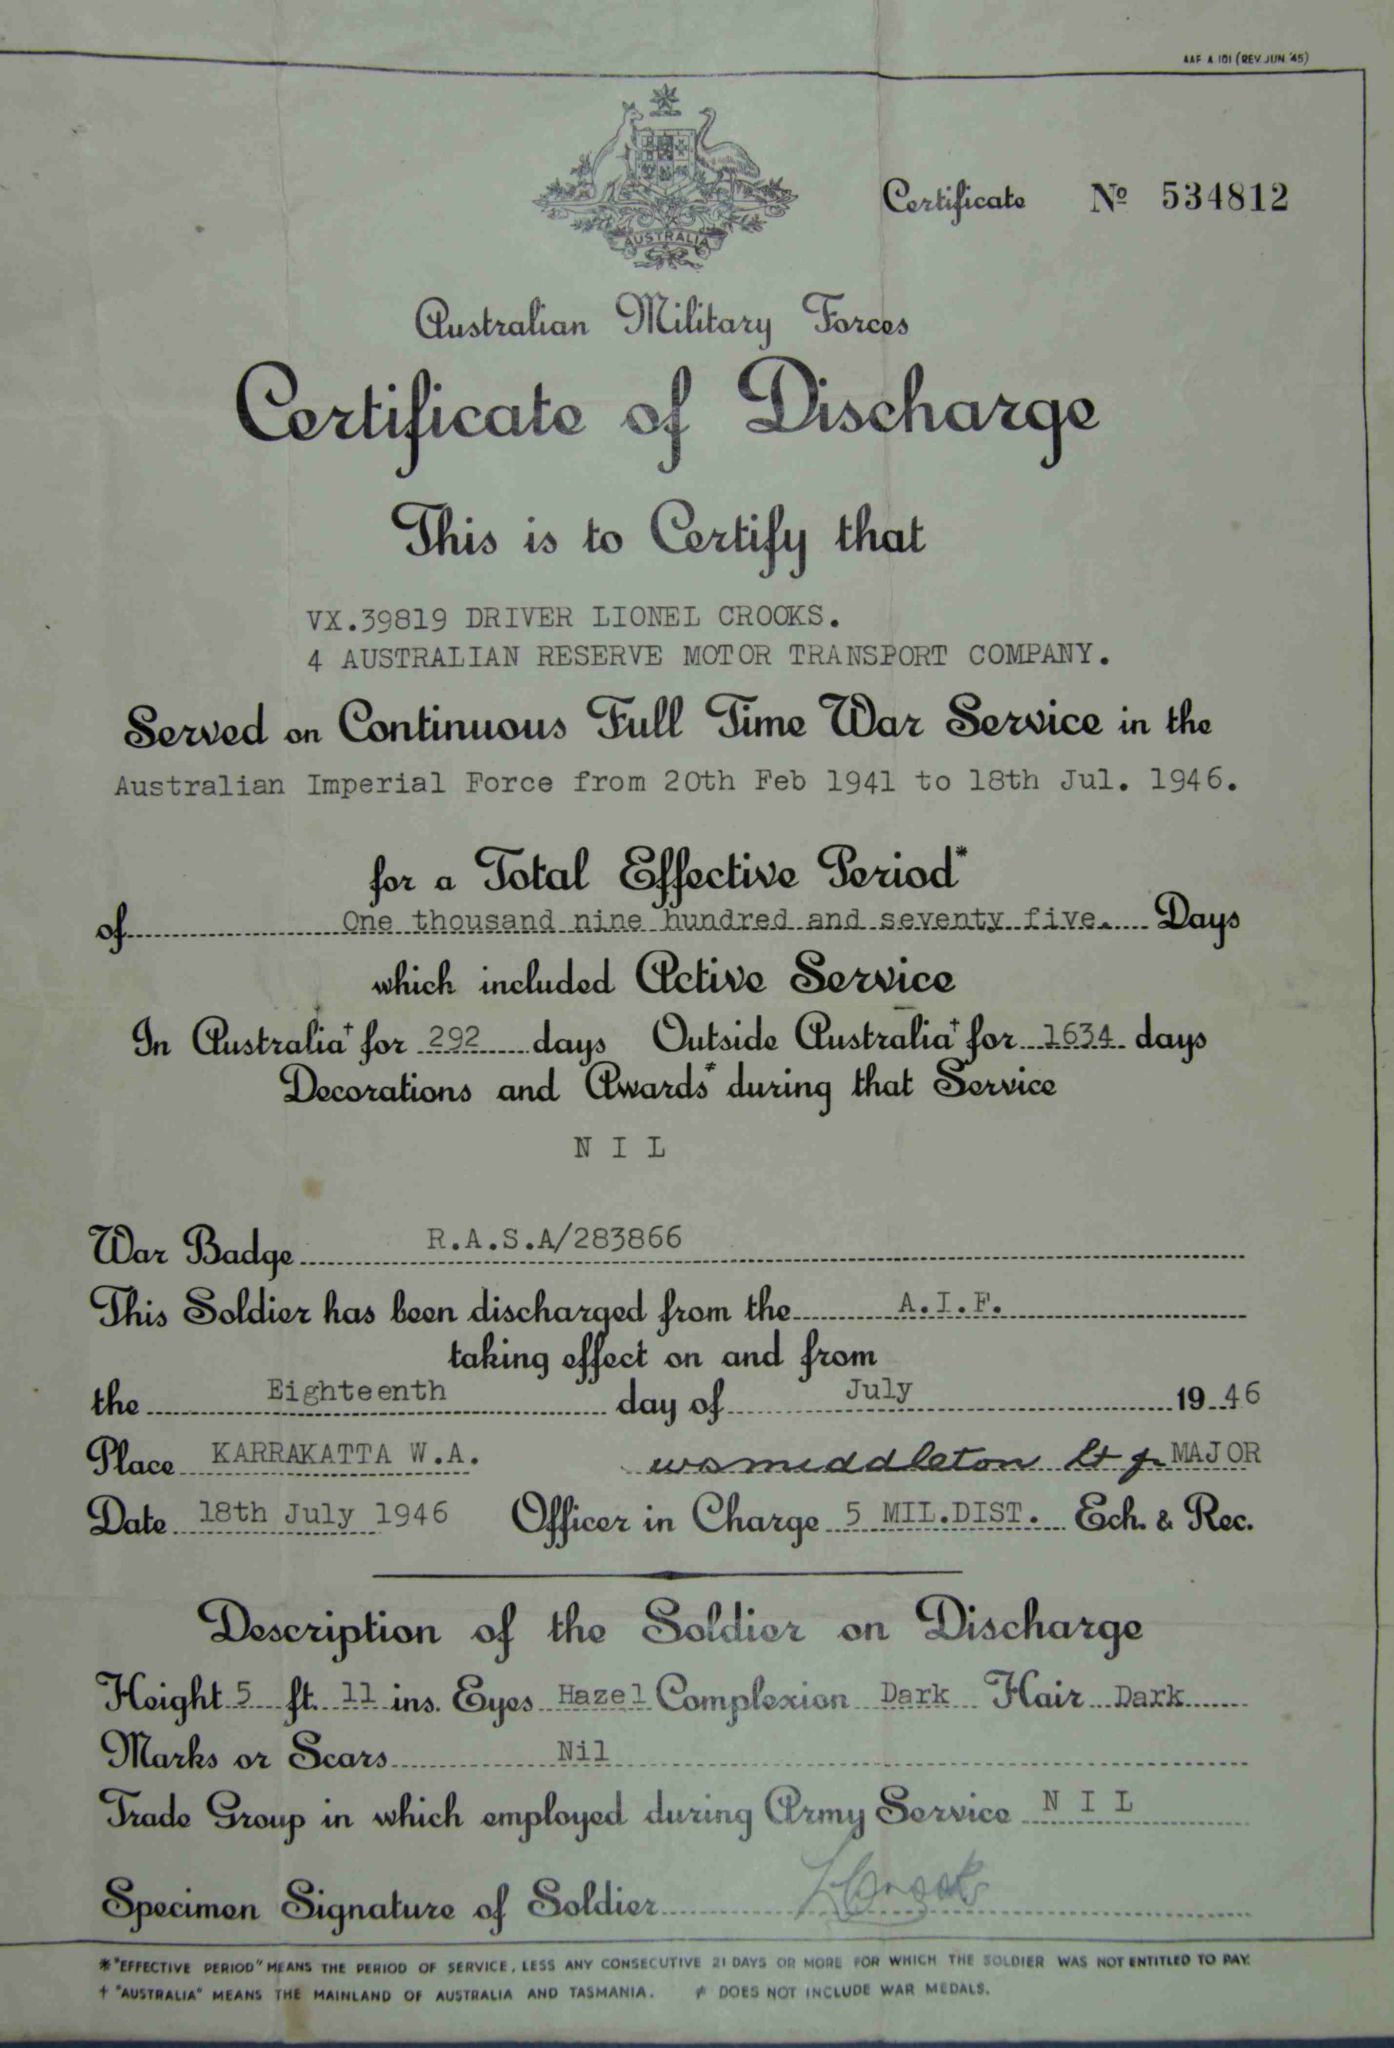 AAF A 101 (REV. JUN '45)
AUSTRALIA
Certificate Nº 534812
Australian Military Forces
Certificate of Discharge
This is to Certify that
VX.39819 DRIVER LIONEL CROOKS.
4 AUSTRALIAN RESERVE MOTOR TRANSPORT COMPANY.
Served on Continuous Full Time War Service in the
Australian Imperial Force from 20th Feb 1941 to 18th Jul. 1946.
for a Total Effective Period*
of One thousand nine hundred and seventy five. Days
which included Active Service
In Australia† for 292 days Outside Australia† for 1634 days
Decorations and Awards≠ during that Service
N I L
War Badge R.A.S.A/283866
This Soldier has been discharged from the A.I.F.
taking effect on and from
the Eighteenth day of July 19 46
Place KARRAKATTA W.A. wsmiddleton Lt for MAJOR
Date 18th July 1946 Officer in Charge 5 MIL.DIST. Ech. & Rec.
Description of the Soldier on Discharge
Height 5 ft. 11 ins. Eyes Hazel Complexion Dark Hair Dark
Marks or Scars Nil
Trade Group in which employed during Army Service N I L
Specimen Signature of Soldier L Crooks
* "EFFECTIVE PERIOD" MEANS THE PERIOD OF SERVICE, LESS ANY CONSECUTIVE 21 DAYS OR MORE FOR WHICH THE SOLDIER WAS NOT ENTITLED TO PAY.
† "AUSTRALIA" MEANS THE MAINLAND OF AUSTRALIA AND TASMANIA. ≠ DOES NOT INCLUDE WAR MEDALS.